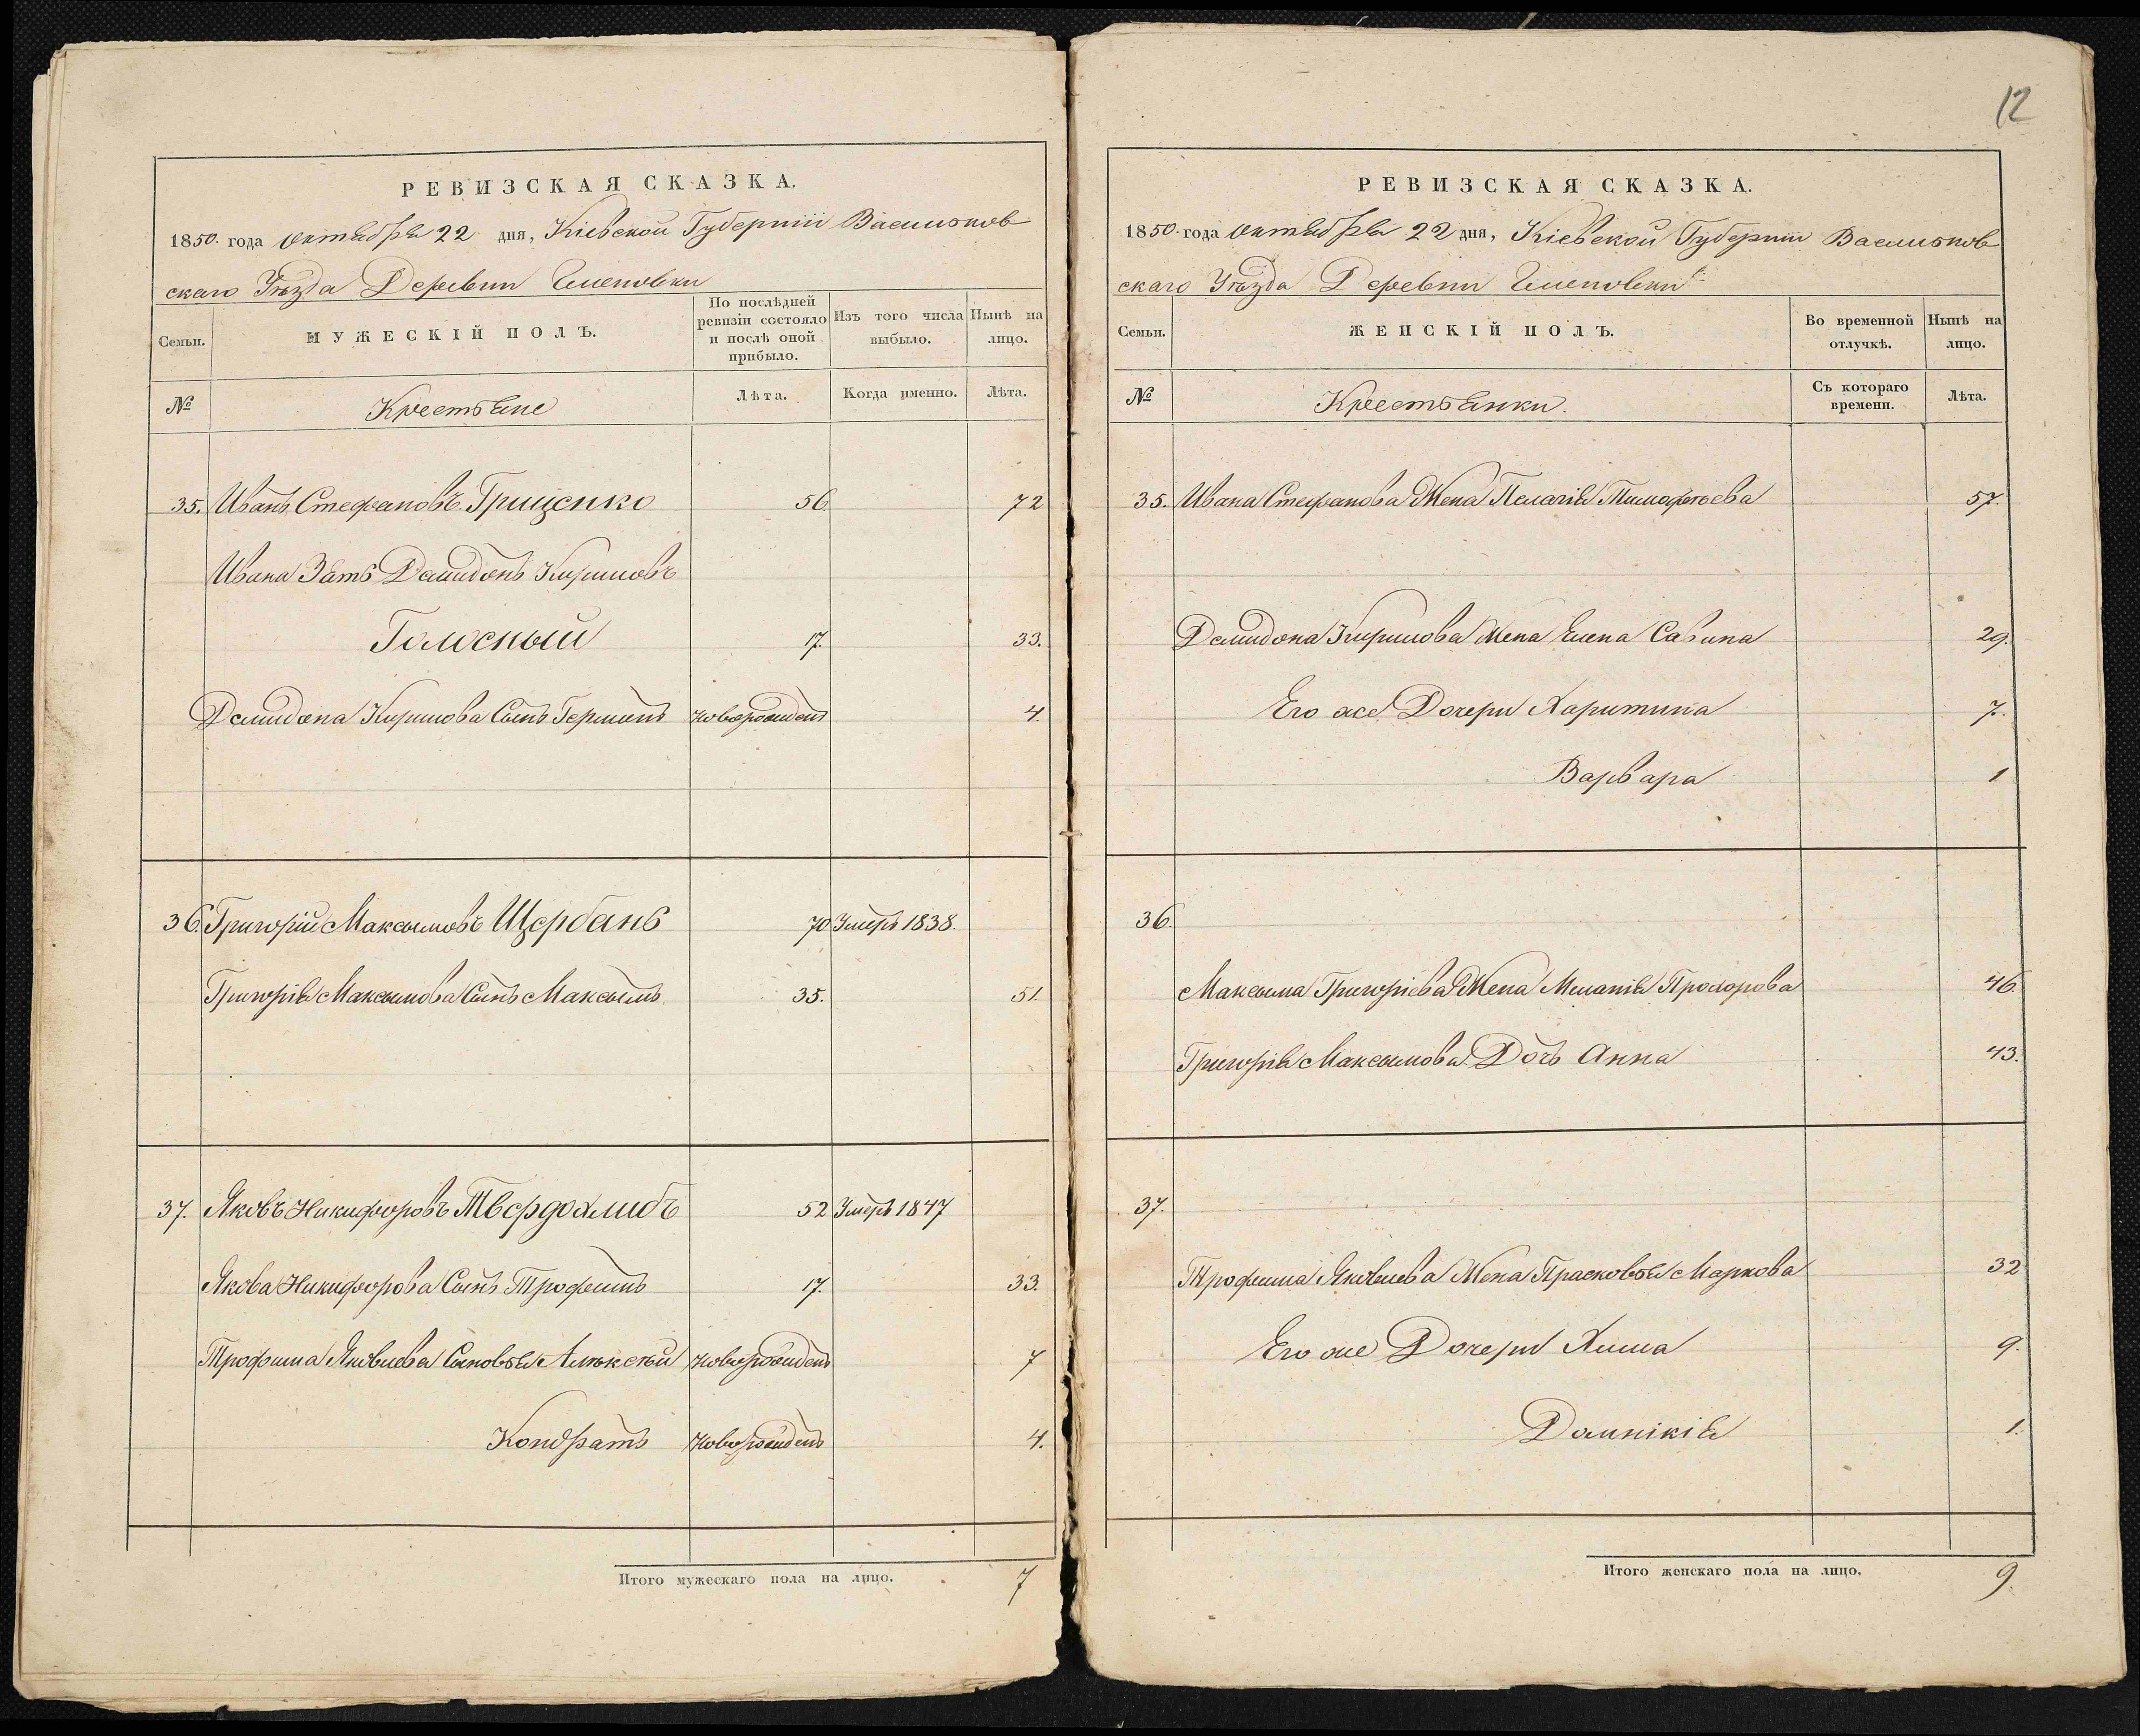 РЕВИЗСКАЯ СКАЗКА.
1850. года октября 22 дня, Кіевской Губерніи Васильков
скаго Уѣзда Деревни
Семьи.
МУЖЕСКІЙ ПОЛЪ.
По послѣдней ревизіи состояло и послѣ оной прибыло.
Изъ того числа выбыло.
Нынѣ на лицо.
№
Крестьяне
Лѣта.
Когда именно.
Лѣта.
35. Иванъ Стефановъ Грищенко 56 72
Ивана Зять Демидонъ Кириловъ
Голосный 17. 33.
Демидона Кирилова Сынъ новорожденъ 4.
36. Григорій Максымовъ Щербань 70 Умеръ 1838.
Григорія Максымова Сынъ Максымъ 35. 51.
37. Яковъ Никифоровъ Твердохлибъ 52 Умеръ 1847
Якова Никифорова Сынъ Трофимъ 17. 33.
Трофима Яковлева Сыновья Алексѣй новорожденъ 7
Кондратъ новорожденъ 4.
Итого мужескаго пола на лицо. 7
12
РЕВИЗСКАЯ СКАЗКА.
1850. года октября 22 дня, Кіевской Губерніи Васильков
скаго Уѣзда Деревни
Семьи.
ЖЕНСКІЙ ПОЛЪ.
Во временной отлучкѣ.
Нынѣ на лицо.
№
Крестьянки.
Съ котораго времени.
Лѣта.
35. Ивана Стефанова Жена Пелагія Тимофѣева 57.
Демидона Кирилова Жена Елена Савина 29.
Его же Дочери Харитина 7.
Варвара 1
36.
Максыма Григоріева Жена Меланія Прохорова 46.
Григорія Максымова Дочь Анна 43.
37.
Трофима Яковлева Жена Прасковья Маркова 32
Его же Дочери Химa 9.
Домнікія 1.
Итого женскаго пола на лицо. 9.